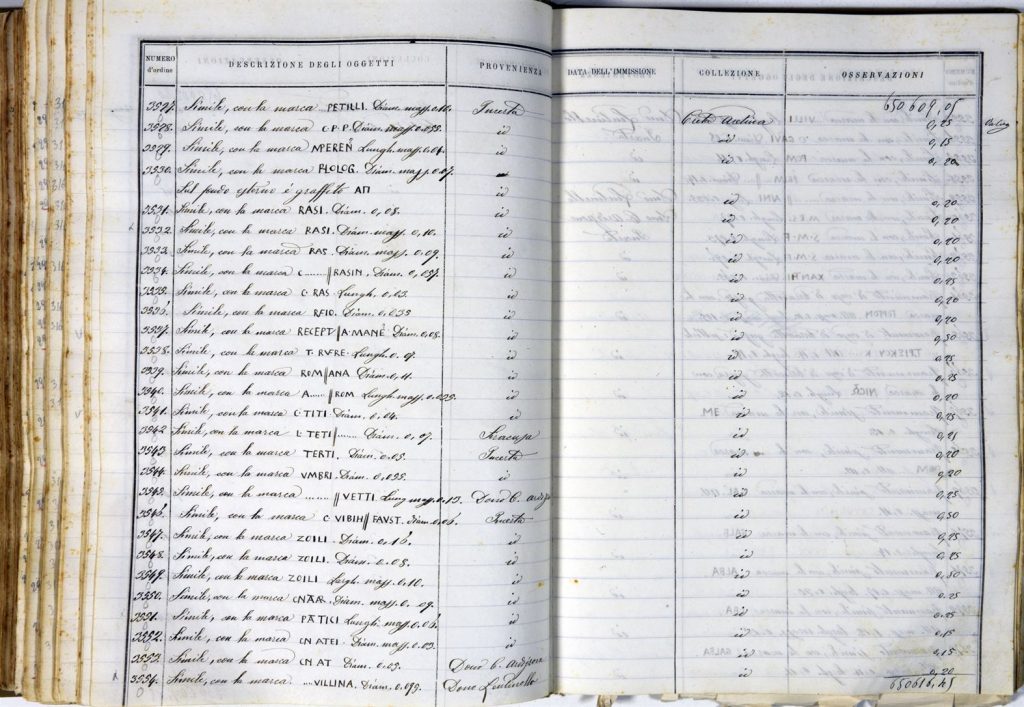 NUMERO d'ordine DESCRIZIONE DEGLI OGGETTI PROVENIENZA DATA DELL'IMMISSIONE COLLEZIONE OSSERVAZIONI
650609,05
3527. Simile, con la marca PETILLI. Diám. mass. 0,10. Incerta Cista Antica 0,25
3528. Simile, con la marca C.P.P. Diám. mass. 0,055. id id 0,15
3529. Simile, con la marca MPEREN Lungh. mass. 0,04. id id 0,20
3530. Simile, con la marca FLOLOG. Diám. mass. 0,07.
Sul fondo esterno è graffito ΑΠ id id 0,20
3531. Simile, con la marca RASI. Diám. 0,08. id id 0,20
3532. Simile, con la marca RASI. Diám. mass. 0,10. id id 0,20
3533. Simile, con la marca RAS. Diám. mass. 0,09. id id 0,20
3534. Simile, con la marca C......//RASIN. Diám. 0,057. id id 0,25
3535. Simile, con la marca C.RAS. Lungh. 0,03. id id 0,20
3536. Simile, con la marca REIO. Diám. 0,035 id id 0,20
3537. Simile, con la marca RECEPT//A.MANE. Diám. 0,08. id id 0,50
3538. Simile, con la marca T.RVRE. Lungh. 0,07. id id 0,25
3539. Simile, con la marca ROM/ANA. Diám. 0,11. id id 0,25
3540. Simile, con la marca A.....//ROM Lungh. mass. 0,035. id id 0,20
3541. Simile, con la marca C.TITI. Diám. 0,04. id id 0,25
3542 Simile, con la marca L.TETI/....... Diám. 0,07. Siracusa id 0,21
3543 Simile, con la marca TERTI. Diám. 0,05. Incerta id 0,20
3544. Simile, con la marca VMBRI. Diám. 0,055. id id 0,20
3545. Simile, con la marca ........//VETTI. Lung. mass. 0,13. Dono C. id 0,25
3546. Simile, con la marca C VIBIH//FAVST. Diám. 0,06. Incerta id 0,50
3547. Simile, con la marca ZOILI. Diám. 0,16. id id 0,75
3548. Simile, con la marca ZOILI. Diám. 0,08. id id 0,25
3549. Simile, con la marca ZOILI Largh. mass. 0,10. id id 0,50
3550. Simile, con la marca CNAR. Diám. mass. 0,09. id id 0,25
3551. Simile, con la marca PATICI Lungh. mass. 0,06. id id 0,25
3552. Simile, con la marca CN ATEI. Diám. mass. 0,03. id id 0,15
3553. Simile, con la marca CN AT. Diám. 0,05. Dono C. id 0,15
3554. Simile, con la marca ....VILLINA. Diám. 0,099. Dono id 0,20
650616,45